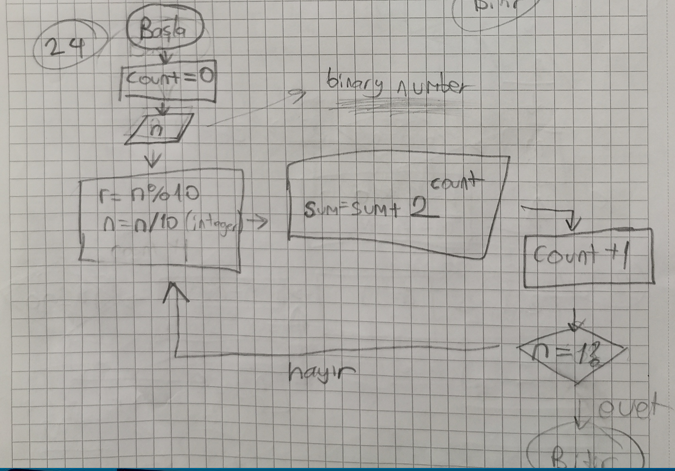 24
Başla
count=0
n
binary number
r= n%10
n=n/10 (integer)
sum=sum+ 2^count
count +1
n=1?
hayır
evet
Bitir